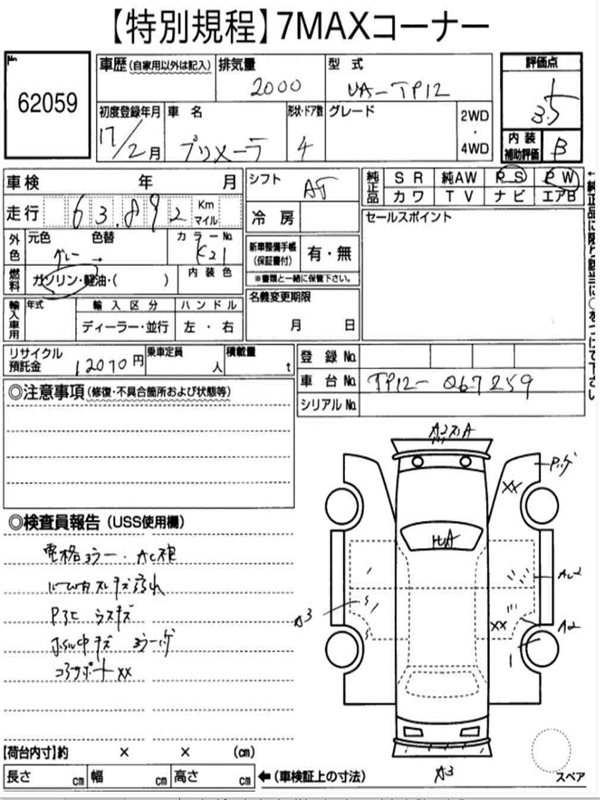 【特別規程】7MAXコーナー
No. 62059
車歴(自家用以外は記入) 排気量 2000 型式 UA-TP12
評価点 3.5
初度登録年月 17/2月 車名 プリメーラ 形状・ドア数 4 グレード 2WD・4WD
内装補助評価 B
車検 年 月 シフト AT 純正品 SR 純AW PS PW
走行 63,892 Km マイル 冷房 カワ TV ナビ エアB
外色 元色 色替 カラーNo. グレー → K21
新車整備手帳(保証書付) 有・無 セールスポイント
※書類と一緒に保管下さい。
燃料 ガソリン・軽油・( ) 内装色
名義変更期限 月 日
輸入車用 年式 輸入区分 ハンドル
ディーラー・並行 左・右
リサイクル預託金 12070円 乗車定員 人 積載量 t
登録No.
車台No. TP12-067259
シリアルNo.
←純正品に限り該当に○をつけて下さい
◎注意事項(修復・不具合箇所および状態等)
◎検査員報告(USS使用欄)
電格ミラー・AC
キズ
P
キズ ミラー
コアサポートXX
A
Pハゲ
XX
A3
XX
A2
A3
【荷台内寸】約 × × (cm)
長さ cm 幅 cm 高さ cm ←(車検証上の寸法)
スペア